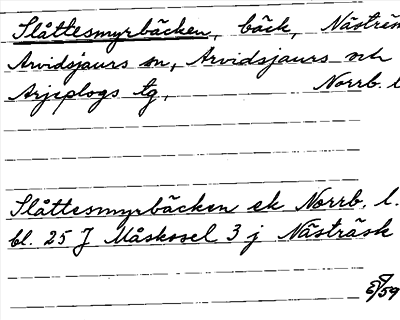 Slåttesmyrbäcken, bäck, Näströn
Arvidsjaurs sn, Arvidsjaurs och
Arjeplogs tg, Norrb. l
Slåttesmyrbäcken ek Norrb. l.
bl. 25 J Måskosel 3 j Nästräsk
59